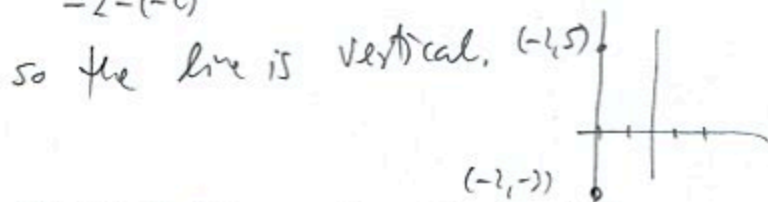 -2-(-2)
so the line is vertical. (-2,5)
(-2,-3)